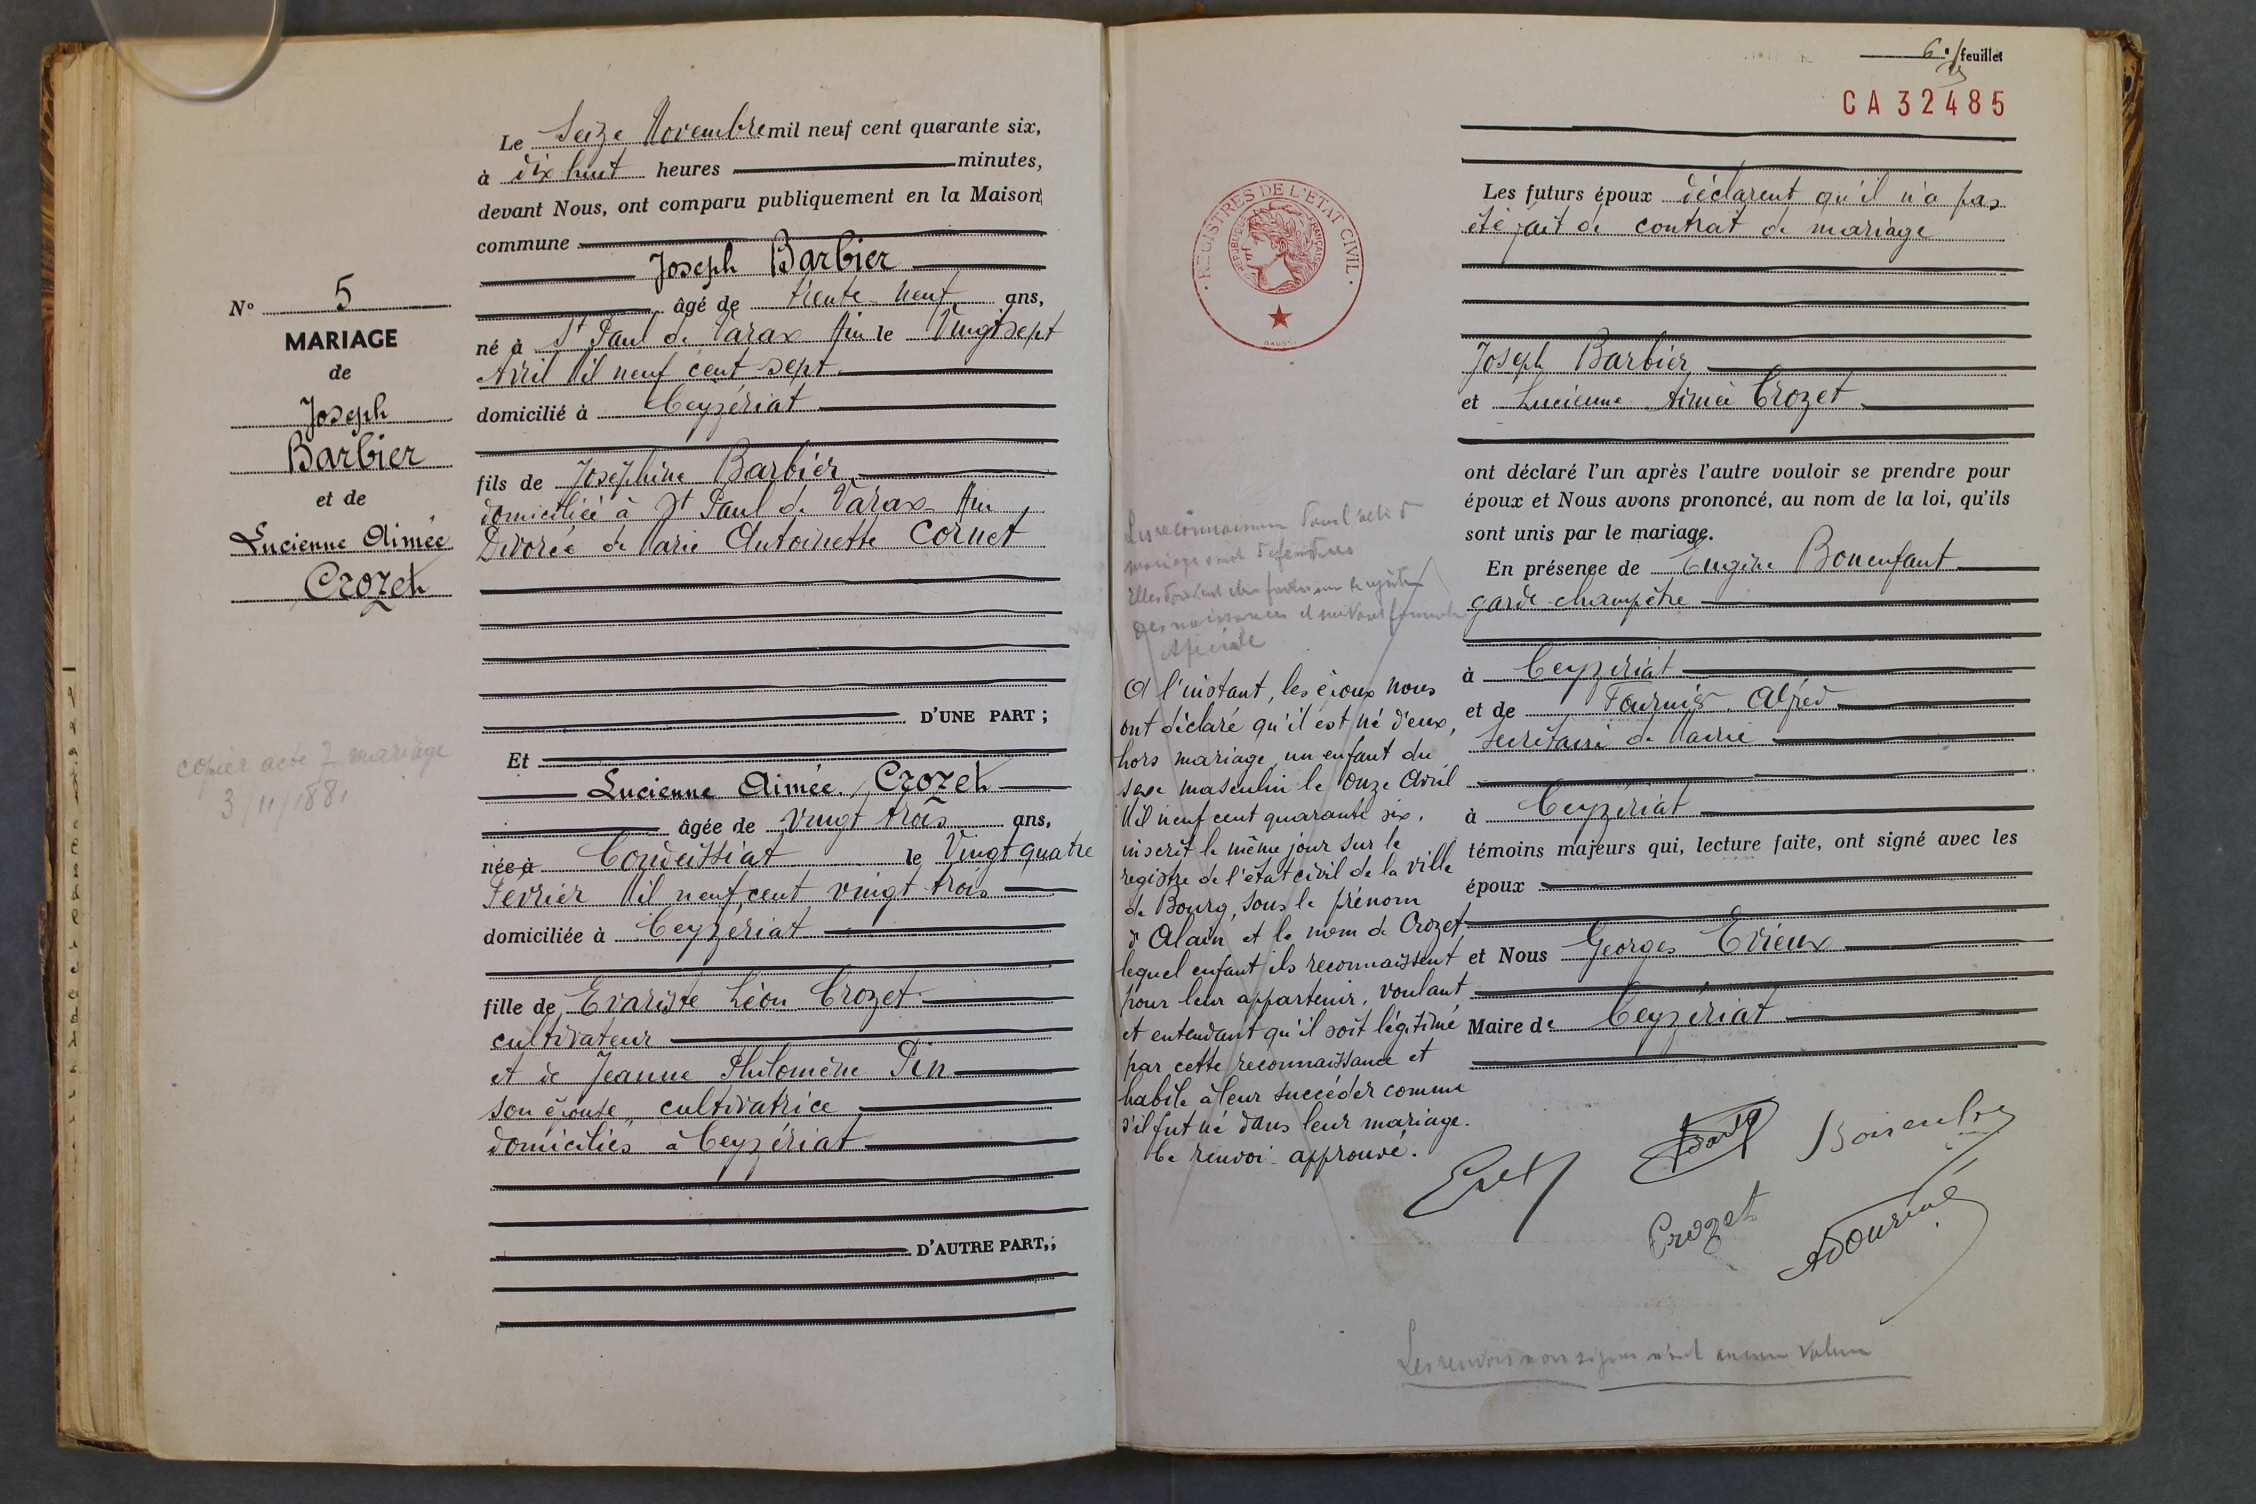 N° 5
MARIAGE
de
Joseph
Barbier
et de
Lucienne Aimée
Crozet
copier acte 7 mariage
3/11/1881
Le Seize Novembre mil neuf cent quarante six,
à dix huit heures minutes,
devant Nous, ont comparu publiquement en la Maison
commune
Joseph Barbier
âgé de trente-neuf ans,
né à St Paul de Varax Ain le Vingt sept
Avril Mil neuf cent sept
domicilié à Ceyzériat
fils de Joséphine Barbier
domiciliée à St Paul de Varax Ain
Divorcé de Marie Antoinette Cornet
D'UNE PART ;
Et
Lucienne Aimée Crozet
âgée de Vingt trois ans,
née à Condeissiat le Vingt quatre
Février Mil neuf cent vingt trois
domiciliée à Ceyzériat
fille de Evariste Léon Crozet
cultivateur
et de Jeanne Philomène Pin
son épouse, cultivatrice
domiciliés à Ceyzériat
D'AUTRE PART,;
6e feuillet
CA 32485
REGISTRES DE L'ETAT CIVIL
REPUBLIQUE FRANÇAISE
Les reconnaissances dans l'acte de
mariage sont defendues
Elles doivent etre faites sur le registre
des naissances et suivant formule
spéciale
A l'instant, les époux nous
ont déclaré qu'il est né d'eux,
hors mariage, un enfant du
sexe masculin le onze Avril
Mil neuf cent quarante six,
inscrit le même jour sur le
registre de l'état civil de la ville
de Bourg, sous le prénom
d'Alain et le nom de Crozet,
lequel enfant ils reconnaissent
pour leur appartenir, voulant
et entendant qu'il soit légitimé
par cette reconnaissance et
habile à leur succéder comme
s'il fut né dans leur mariage.
Ce renvoi approuvé.
Les futurs époux déclarent qu'il n'a pas
été fait de contrat de mariage
Joseph Barbier
et Lucienne Aimée Crozet
ont déclaré l'un après l'autre vouloir se prendre pour
époux et Nous avons prononcé, au nom de la loi, qu'ils
sont unis par le mariage.
En présence de Eugène Bonenfant
garde-champêtre
à Ceyzériat
et de Fournié Alfred
Secrétaire de Mairie
à Ceyzériat
témoins majeurs qui, lecture faite, ont signé avec les
époux
et Nous Georges Evieux
Maire de Ceyzériat
Crozet
Les renvois non signés n'ont aucune valeur